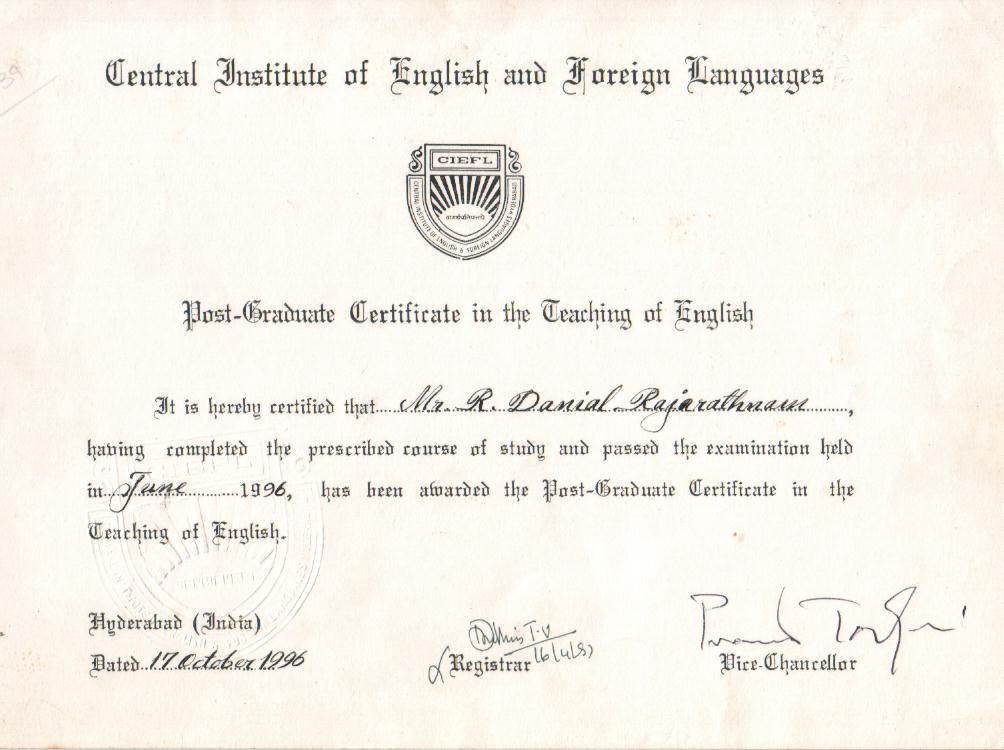 Central Institute of English and Foreign Languages
CIEFL
CENTRAL INSTITUTE OF ENGLISH & FOREIGN LANGUAGES HYDERABAD
Post-Graduate Certificate in the Teaching of English
It is hereby certified that Mr. R. Danial Rajarathnam,
having completed the prescribed course of study and passed the examination held
in June 1996, has been awarded the Post-Graduate Certificate in the
Teaching of English.
Hyderabad (India)
Dated 17 October 1996
Registrar
Vice-Chancellor